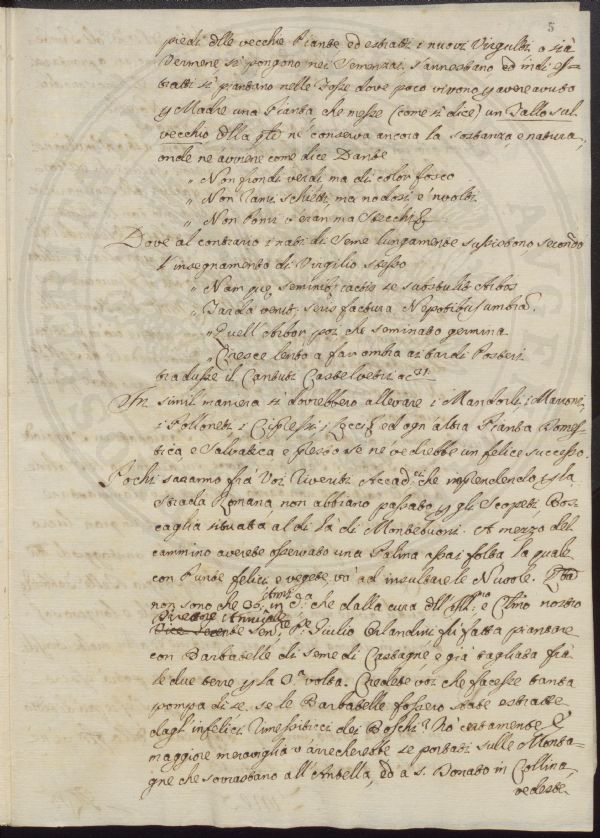 5
piedi dlle vecchie Piante ed estratti i nuovi Virgulti o sià
Vermene si pongono nei Semenzai s'annestano ed indi es-
tratti si piantano nelle Fosse dove poco vivono p avere avuto
p Madre una Pianta che messe (come si dice) un Tallo sul
vecchio dlla qle né conserva ancora la sostanza, e natura,
onde ne avviene come dice Dante
" Non frondi verdi ma di color fosco
" Non Rami schietti, ma nodosi e 'nvolti
" Non Pomi v'eran ma Stecchi &
Dove al contrario i nati di Seme lungamente sussistono secondo
l'insegnamento di Virgilio stesso
" Nam quę seminibus iactis se substulit Arbos
" Tarda venit seris factura Nepotibus umbram.
" Quell'Arbor poi che seminato germina
" Cresce lento a far ombra ai tardi Posteri
tradusse il Canturi Castelvetri ac 31.
In simil maniera si dovrebbero allevare i Mandorli, i Marroni,
i Polloneti i Cipressi i Lecci ed ogn'altra Pianta Domes-
tica e Salvatica e presto se ne vedrebbe un felice successo.
Pochi saranno frà Voi Riveriti Accadci che imprendendo p la
strada Romana non abbiano passato p gli Scopeti, Bos-
caglia situata al di là di Montebuoni. A mezzo del
cammino averete osservato una Palina assai folta la quale
con Piante felici e vegete và ad insultare le Nuvole. Qta
non sono che 30: in Anni che dalla cura dll' Illmo e Clmo nostro
Direttore Annuale
Vice Reggente Senre Pe: Giulio Orlandini fù fatta piantare
con Barbatelle di seme di Castagne e già tagliata frà
le due terre p la 3a volta. Credete voi che facesse tanta
pompa di se, se le Barbatelle fossero state estratte
dagl'infelici Rimessiticci dei Boschi? Nò certamente. E
maggiore meraviglia v'arrecherebbe se portati sulle Monta-
gne che sovrastano all'Antella, ed a S. Donato in Collina,
vedeste